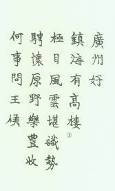 廣州好
鎮海有高樓
極目風雲堪識勢
騁懷原野樂豐收
何事問王侯